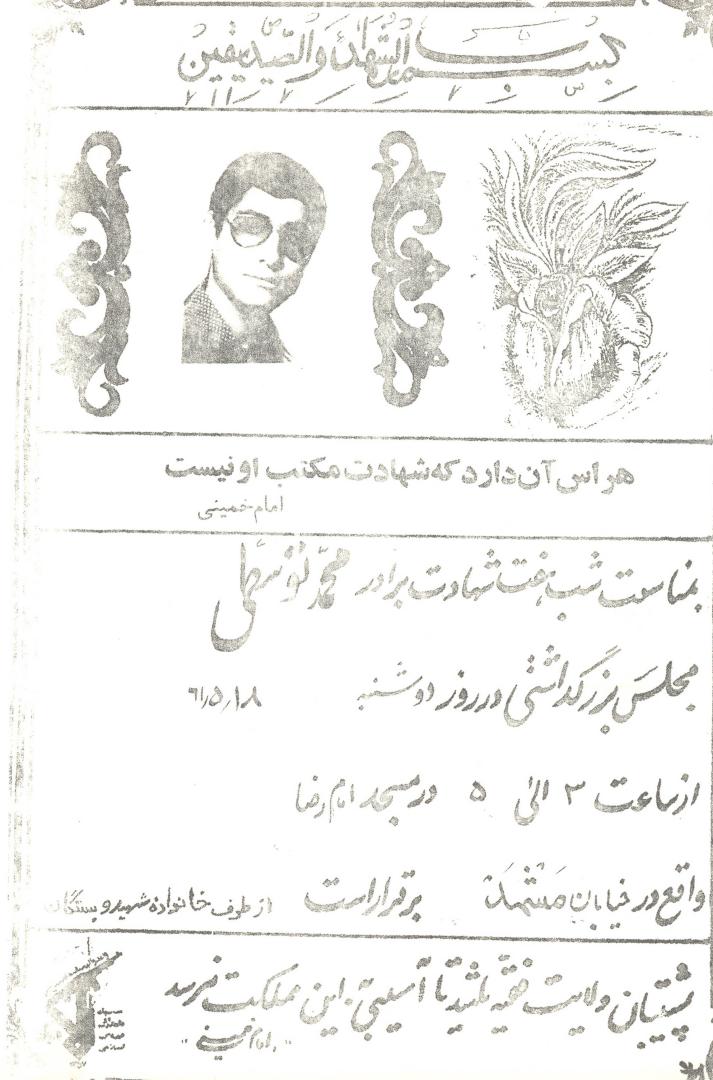 بسم رب الشهداء والصدیقین
هراس آن دارد که شهادت مکتب او نیست
امام خمینی
بمناسبت شب هفت شهادت برادر محمد
مجلس بزرگداشتی در روز دوشنبه ۶۱٫۵٫۱۸
از ساعت ۳ الی ۵ در مسجد امام رضا
واقع در خیابان برقرار است از طرف خانواده شهید و بستگان
پشتیبان ولایت فقیه باشید تا آسیبی به این مملکت نرسد
"امام خمینی"